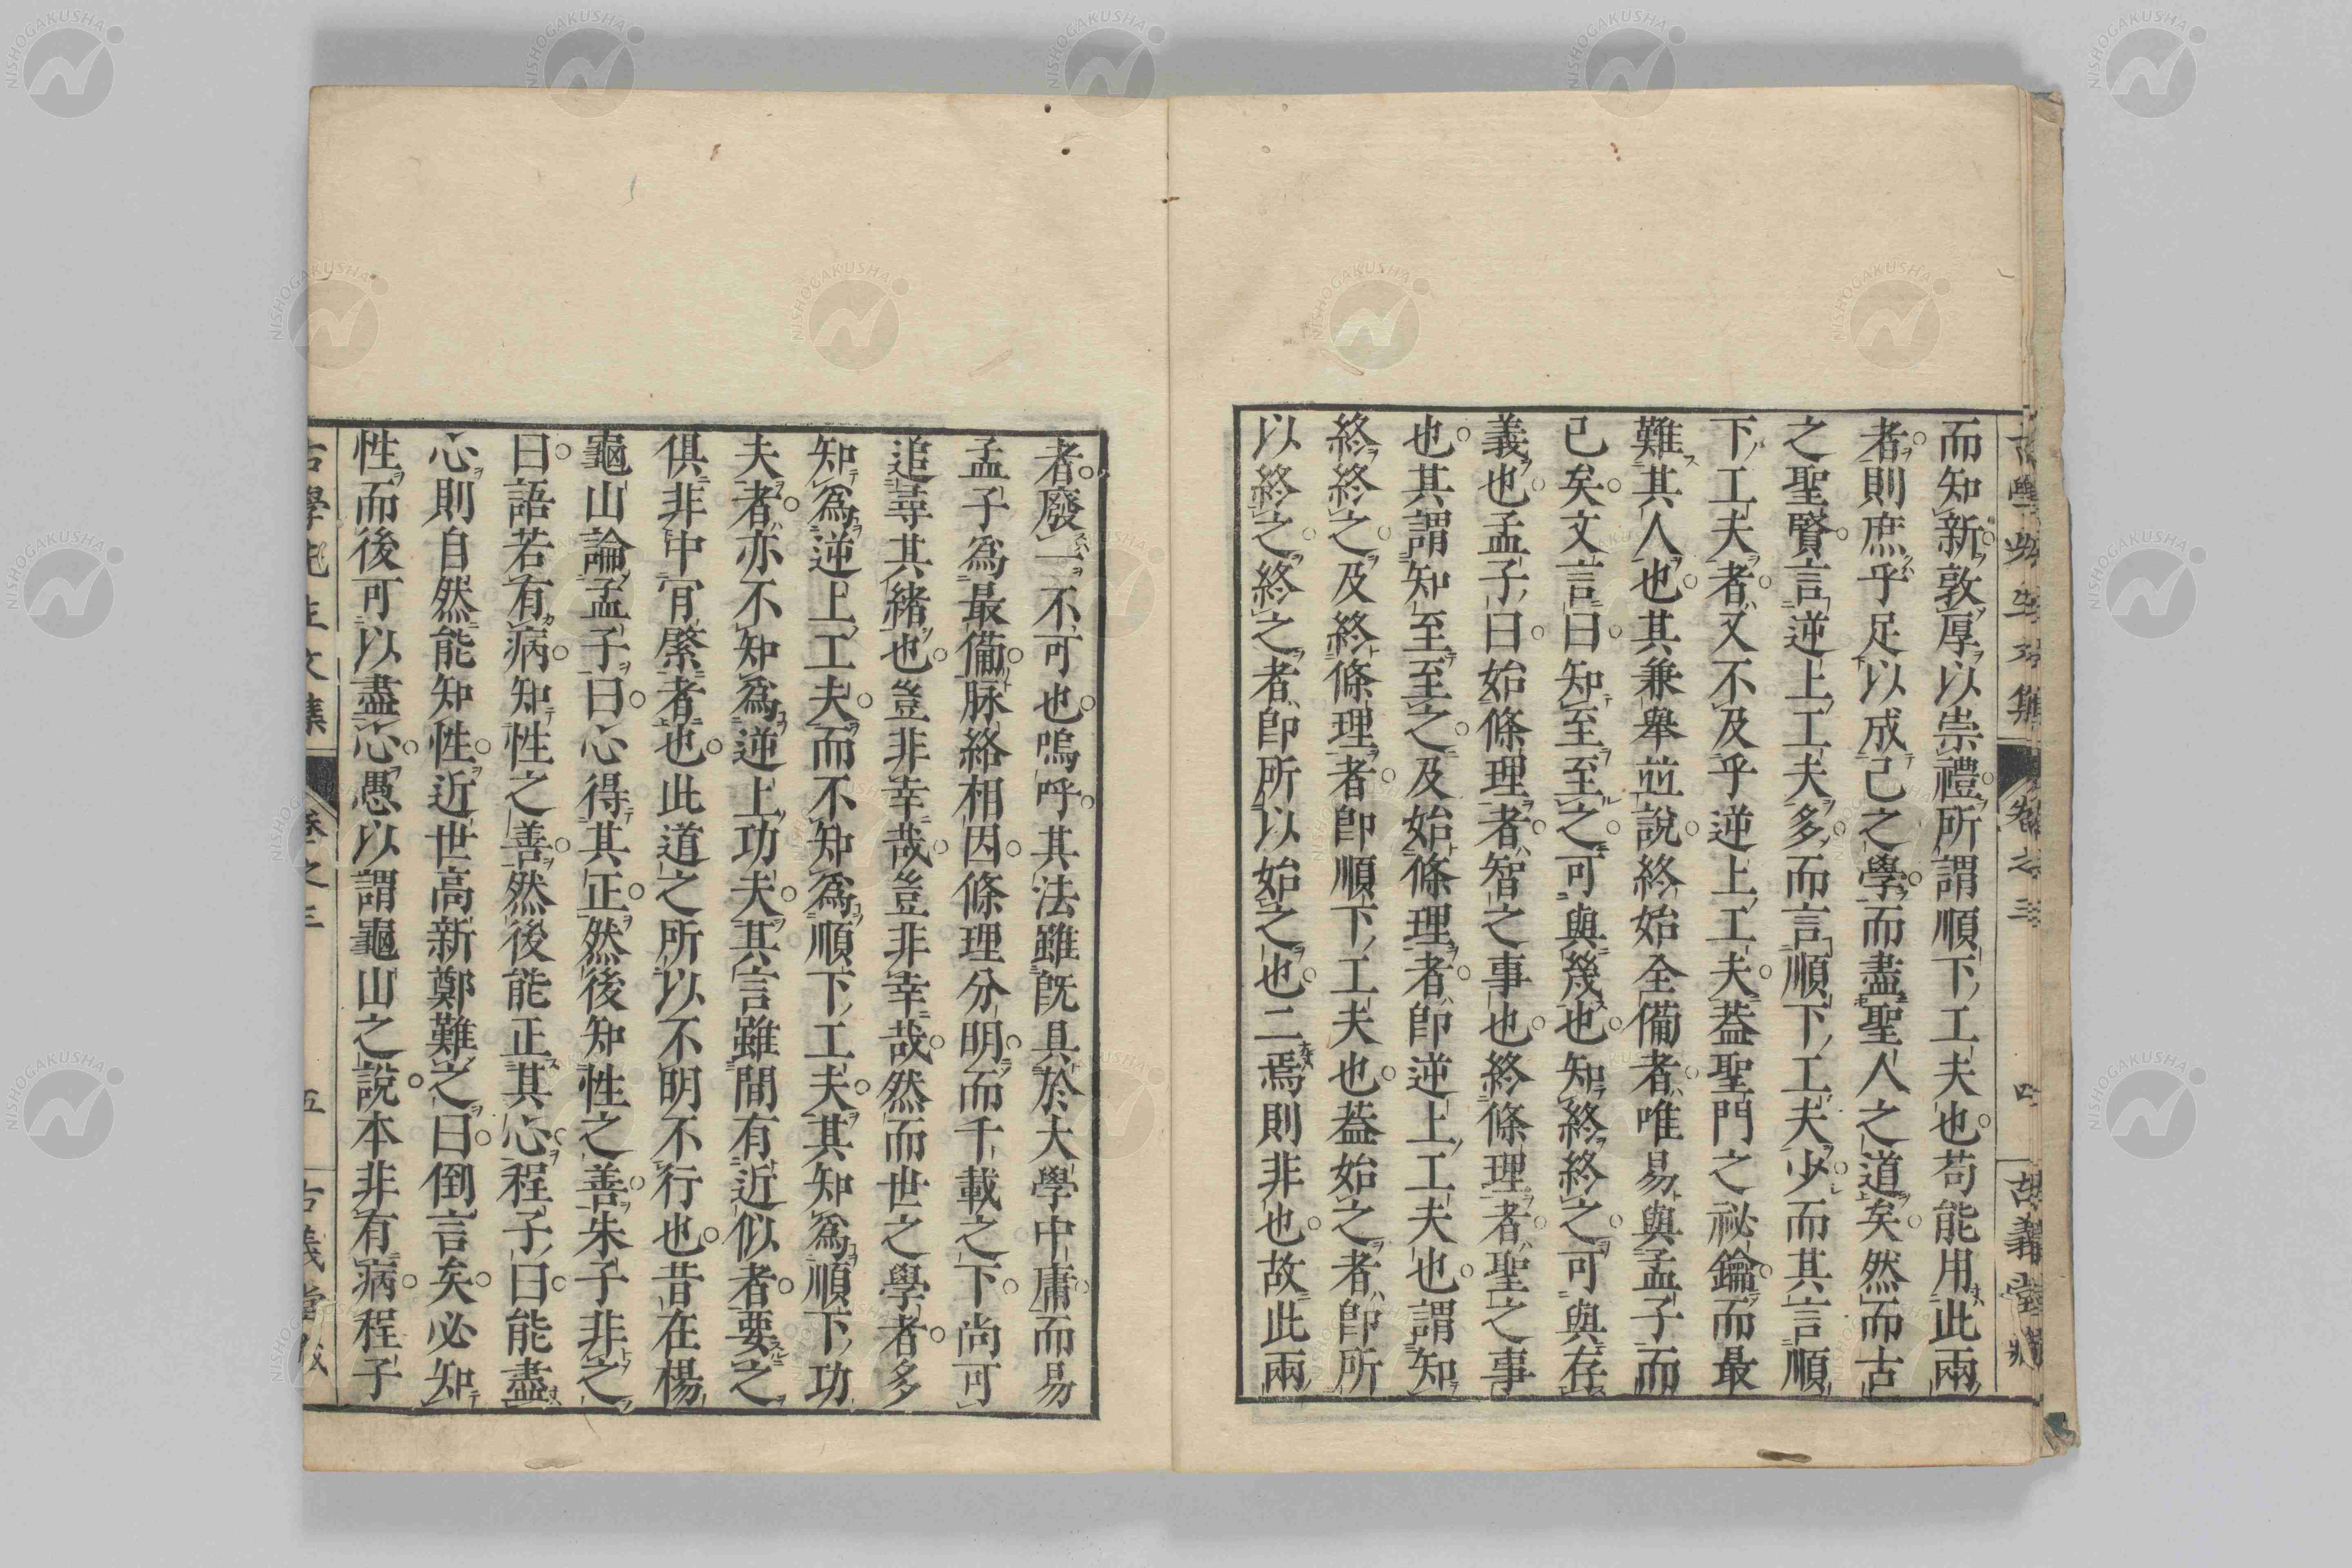 而知新敦厚以崇禮所謂順下工夫也苟能用此兩
者則庶乎足以成己之學而盡聖人之道矣然而古
之聖賢言逆上工夫多而言順下工夫少而其言順
下工夫者又不及乎逆上工夫蓋聖門之祕鑰而最
難其人也其兼舉並說終始全備者唯易與孟子而
已矣文言曰知至至之可與幾也知終終之可與存
義也孟子曰始條理者智之事也終條理者聖之事
也其謂知至至之及始條理者卽逆上工夫也謂知
終終之及終條理者卽順下工夫也蓋始之者卽所
以終之終之者卽所以始之也二焉則非也故此兩
者廢一不可也嗚呼其法雖旣具於大學中庸而易
孟子爲最備脉絡相因條理分明而千載之下尚可
追尋其緒也豈非幸哉豈非幸哉然而世之學者多
知爲逆上工夫而不知爲順下工夫其知爲順下功
夫者亦不知爲逆上功夫其言雖間有近似者要之
俱非中肎綮者也此道之所以不明不行也昔在楊
龜山論孟子曰心得其正然後知性之善朱子非之
曰語若有病知性之善然後能正其心程子曰能盡
心則自然能知性近世高新鄭難之曰倒言矣必知
性而後可以盡心愚以謂龜山之說本非有病程子
古學先生文集 卷之三 五 古義堂藏